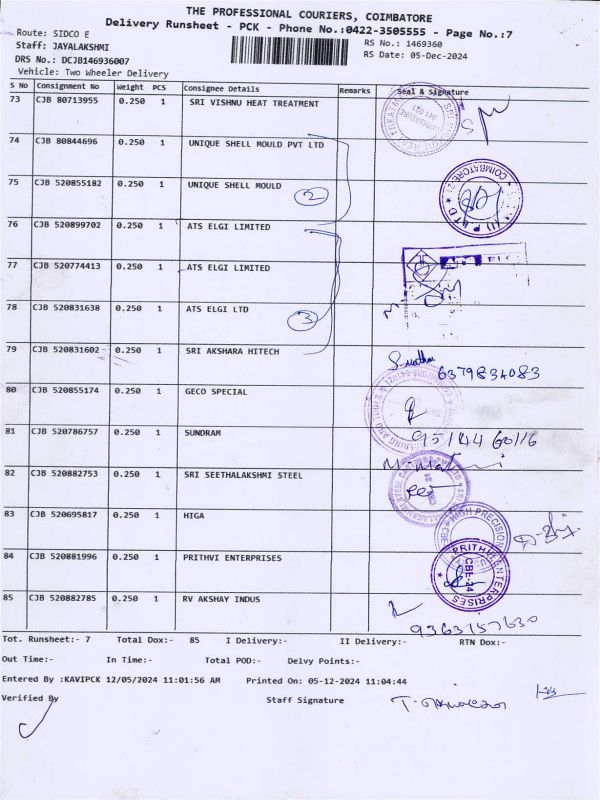 THE PROFESSIONAL COURIERS, COIMBATORE
Delivery Runsheet - PCK - Phone No.:0422-3505555 - Page No.:7
Route: SIDCO E
RS No.: 1469360
Staff: JAYALAKSHMI
RS Date: 05-Dec-2024
DRS No.: DCJB146936007
Vehicle: Two Wheeler Delivery
S No Consignment No Weight PCS Consignee Details Remarks Seal & Signature
73 CJB 80713955 0.250 1 SRI VISHNU HEAT TREATMENT
74 CJB 80844696 0.250 1 UNIQUE SHELL MOULD PVT LTD
75 CJB 520855182 0.250 1 UNIQUE SHELL MOULD 2
76 CJB 520899702 0.250 1 ATS ELGI LIMITED
77 CJB 520774413 0.250 1 ATS ELGI LIMITED
78 CJB 520831638 0.250 1 ATS ELGI LTD 3
79 CJB 520831602 0.250 1 SRI AKSHARA HITECH
6379834083
80 CJB 520855174 0.250 1 GECO SPECIAL
81 CJB 520786757 0.250 1 SUNDRAM
82 CJB 520882753 0.250 1 SRI SEETHALAKSHMI STEEL
83 CJB 520695817 0.250 1 HIGA
HIGH PRECISION
84 CJB 520881996 0.250 1 PRITHVI ENTERPRISES
PRITHVI ENTERPRISES
85 CJB 520882785 0.250 1 RV AKSHAY INDUS
9363157630
Tot. Runsheet:- 7 Total Dox:- 85 I Delivery:- II Delivery:- RTN Dox:-
Out Time:- In Time:- Total POD:- Delvy Points:-
Entered By :KAVIPCK 12/05/2024 11:01:56 AM Printed On: 05-12-2024 11:04:44
Verified By Staff Signature